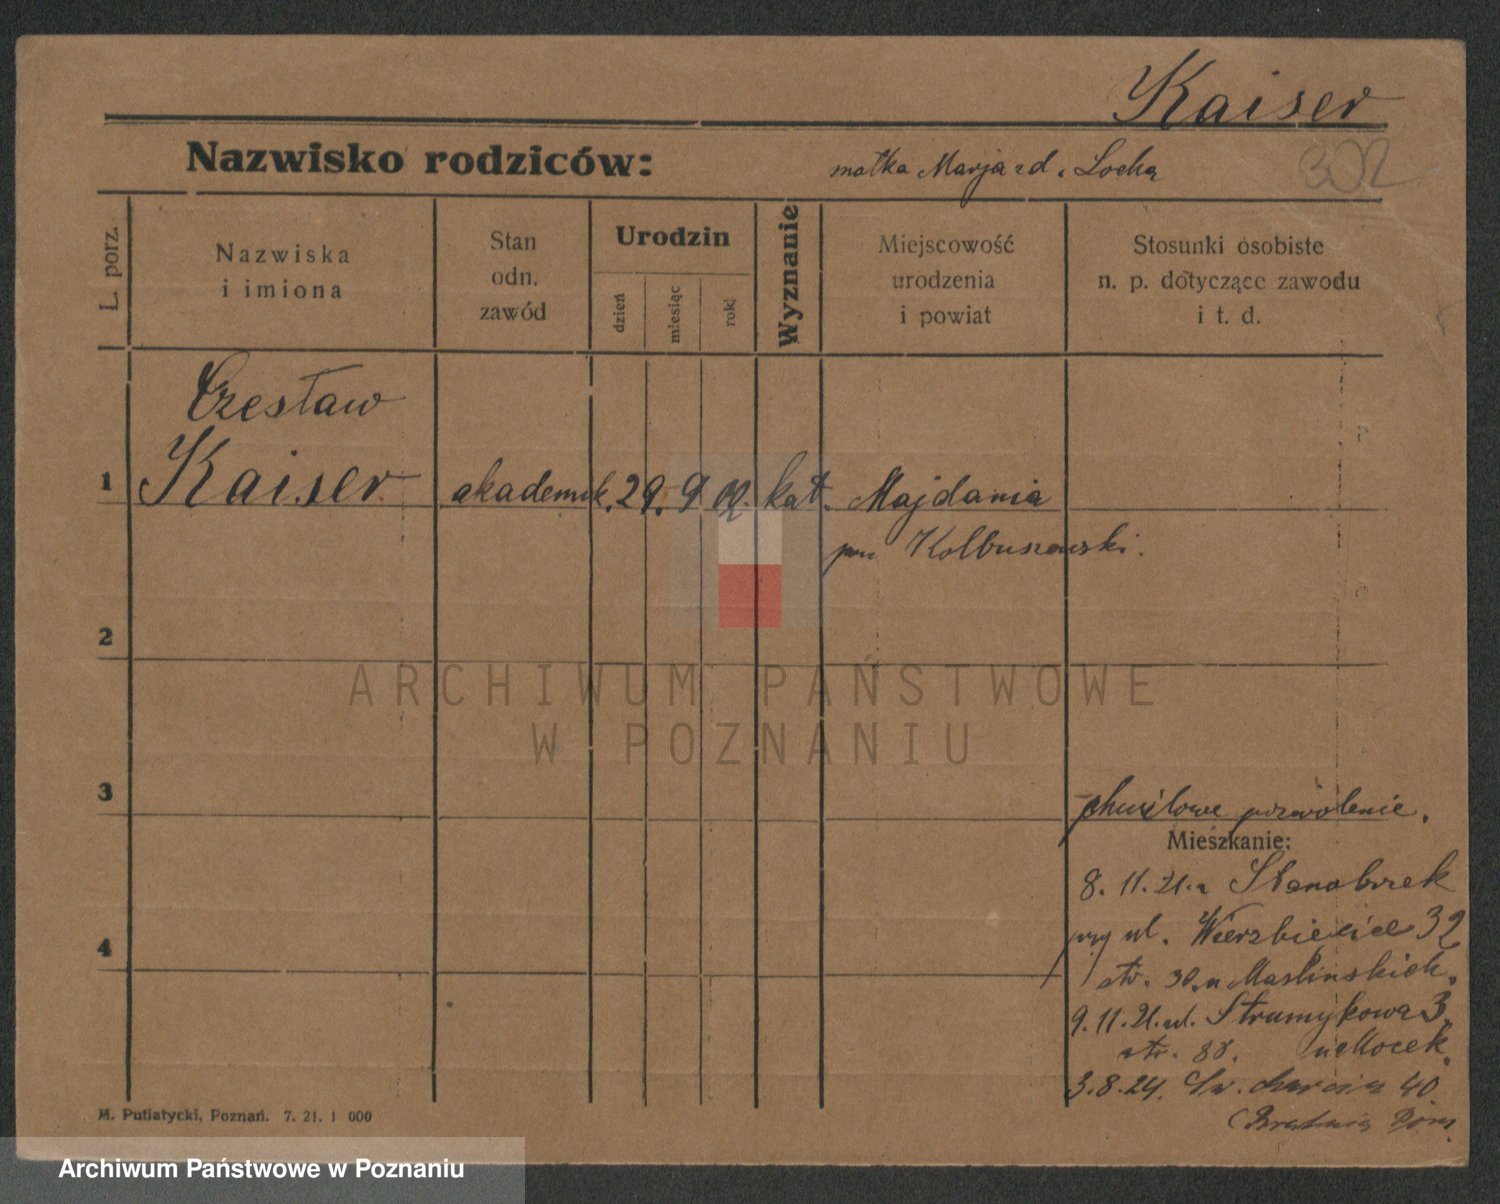 Kaiser
Nazwisko rodziców: matka Marja zd. Locha
302
L. porz.
Nazwiska i imiona
Stan odn. zawód
Urodzin
dzień
miesiąc
rok
Wyznanie
Miejscowość urodzenia i powiat
Stosunki osobiste n. p. dotyczące zawodu i t. d.
Czesław
1 Kaiser akademik. 29. 9 02. kat. Majdania
pow Kolbuszowski.
2
3
chwilowe pozwolenie.
Mieszkanie:
8. 11. 21. z
przy ul. Wierzbięcice 32
4
str. 30. u
9. 11. 21. ul. Strumykowa 3.
str. u Mocek.
3. 8. 24. Św. 40
(Bratnia Pom.
M. Putiatycki, Poznań. 7. 21. 1 000
ARCHIWUM PAŃSTWOWE
W POZNANIU
Archiwum Państwowe w Poznaniu